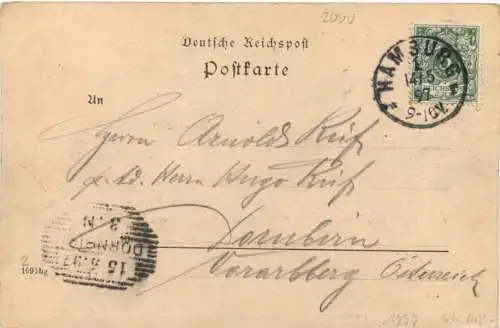 2000
Deutsche Reichspost
Postkarte
HAMBURG
1
14/5
97
9-10V.
An
Herrn Arnold Ruf
p. ad. Herrn Hugo Ruf
Dornbirn
Vorarlberg Österreich
DORNBI
15 5 97
3 N
2
1691bg
1897